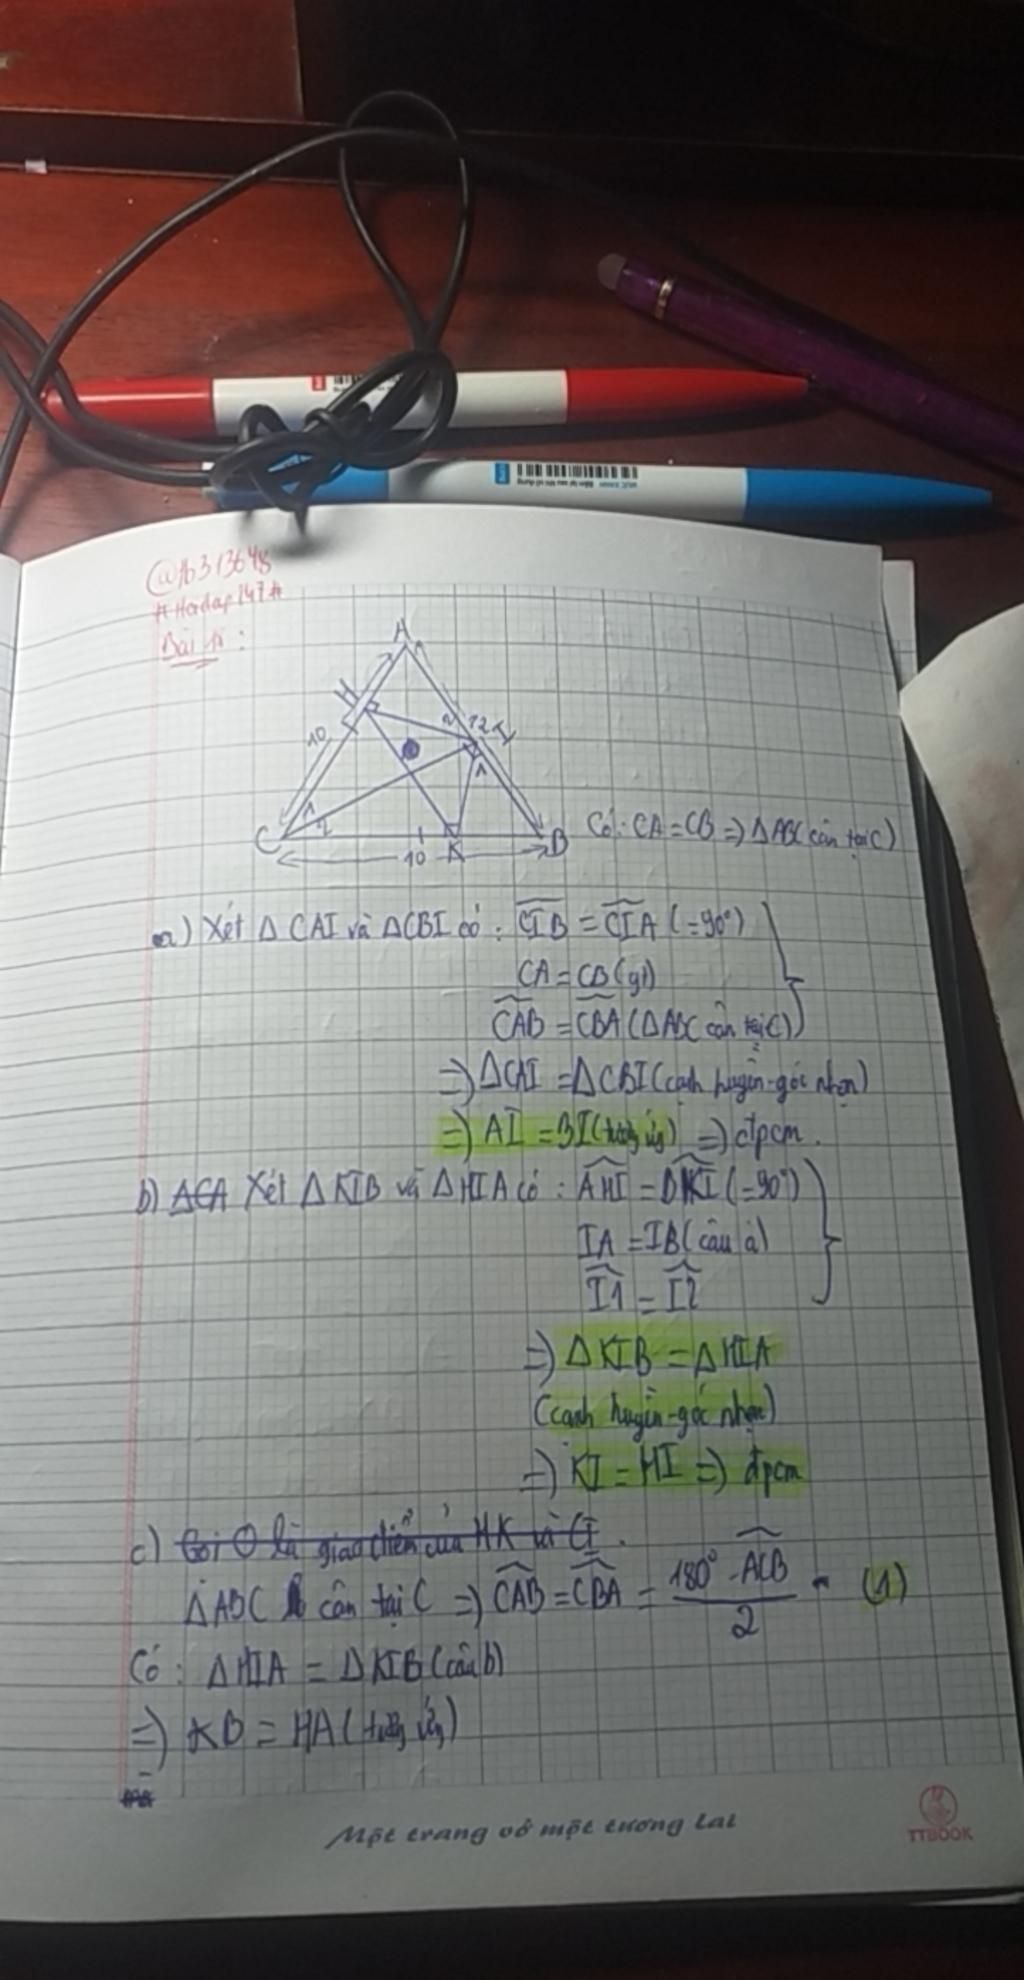 #Hoidap247#
Bài 1:
A
H
10
2
12
I
1
1
2
C
10
K
B
Có: CA = CB => ΔABC cân tại C)
a) Xét Δ CAI và ΔCBI có: CIB = CIA (=90°)
CA = CB (gt)
CAB = CBA (ΔABC cân tại C)
=> ΔCAI = ΔCBI (cạnh huyền-góc nhọn)
=> AI = BI (tương ứng) => đpcm.
b) Xét Δ KIB và Δ HIA có: AHI = BKI (=90°)
IA = IB (câu a)
I1 = I2
=> Δ KIB = Δ HIA
(cạnh huyền-góc nhọn)
=> KI = HI => đpcm
c) Gọi O là giao điểm của HK và CI.
ΔABC cân tại C => CAB = CBA = 180° - ACB / 2 (1)
Có: Δ HIA = Δ KIB (câu b)
=> KB = HA (tương ứng)
Một trang vở một tương lai
TTBOOK